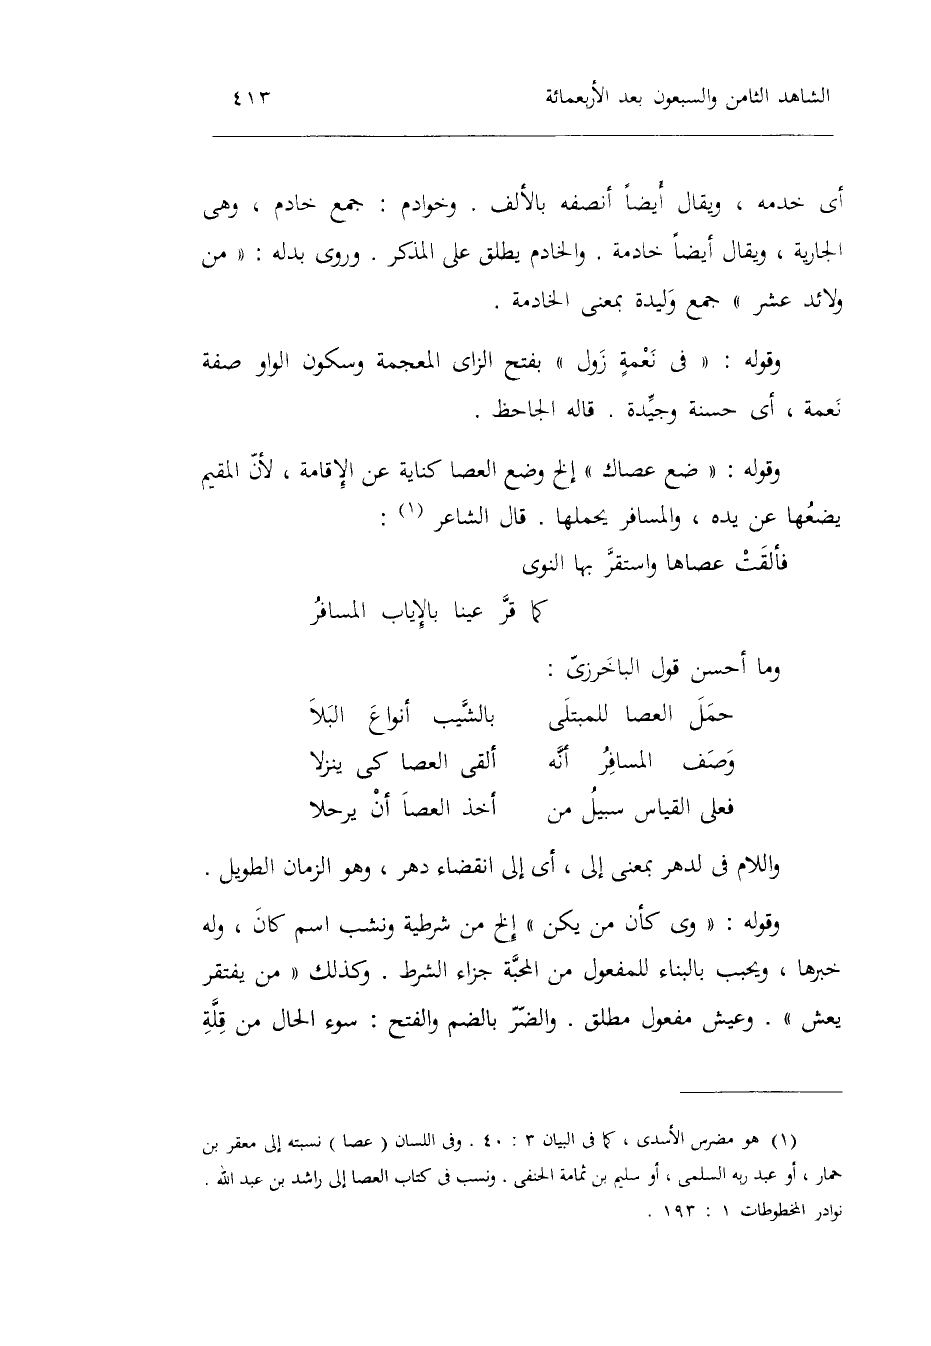 الشاهد الثامن والسبعون بعد الأربعمائة ٤١٣
أى خدمه ، ويقال أَيضاً أنصفه بالألف . وخوادم : جمع خادم ، وهى
الجارية ، ويقال أيضاً خادمة . والخادم يطلق على المذكر . وروى بدله : « من
ولائد عشر » جمع وَليدة بمعنى الخادمة .
وقوله : « فى نَعْمةٍ زَول » بفتح الزاى المعجمة وسكون الواو صفة
نَعمة ، أى حسنة وجيِّدة . قاله الجاحظ .
وقوله : « ضع عصاك » إلخ وضع العصا كناية عن الإِقامة ، لأنّ المقيم
يضعُها عن يده ، والمسافر يحملها . قال الشاعر (١) :
فألقَتْ عصاها واستقرَّ بها النوى
كما قرَّ عينا بالإِياب المسافرُ
وما أحسن قول الباخَرزىّ :
حمَلَ العصا للمبتلَى بالشَّيب أنواعَ البَلاَ
وَصَف المسافِرُ أنَّه ألقى العصا كى ينزلا
فعلى القياس سبيلُ من أخذ العصاَ أنْ يرحلا
واللام فى لدهر بمعنى إلى ، أى إلى انقضاء دهر ، وهو الزمان الطويل .
وقوله : « وى كأن من يكن » إلخ من شرطية ونشب اسم كانَ ، وله
خبرها ، ويحبب بالبناء للمفعول من المحبَّة جزاء الشرط . وكذلك « من يفتقر
يعش » . وعيش مفعول مطلق . والضّرّ بالضم والفتح : سوء الحال من قِلَّةِ
(١) هو مضرس الأسدى ، كما فى البيان ٣ : ٤٠ . وفى اللسان ( عصا ) نسبته إلى معقر بن
حمار ، أو عبد ربه السلمى ، أو سليم بن ثمامة الحنفى . ونسب فى كتاب العصا إلى راشد بن عبد الله .
نوادر المخطوطات ١ : ١٩٣ .